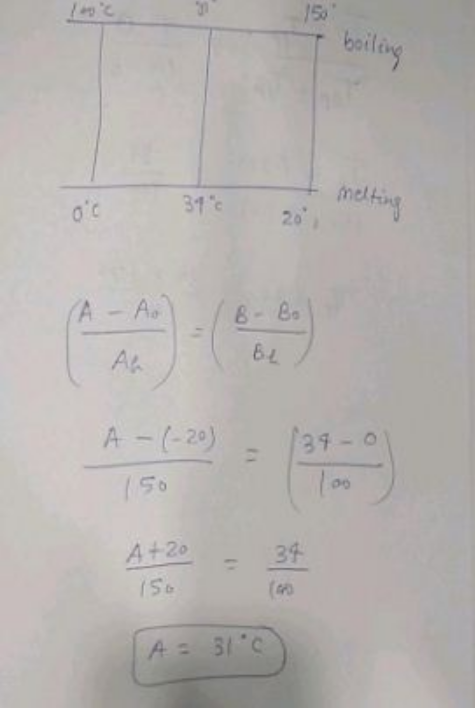 100°C 150°
boiling
0°C 34°c 20°
Melting
(A - A₀ / Aₕ) = (B - B₀ / Bₕ)
A - (-20) / 150 = (34 - 0 / 100)
A+20 / 150 = 34 / 100
A = 31°C